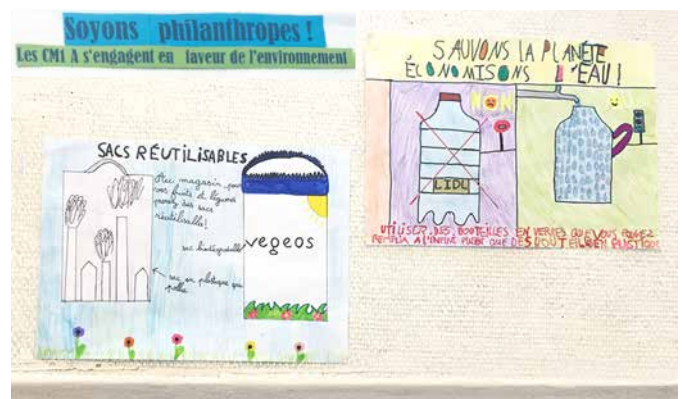 Soyons philanthropes !
Les CM1 A s'engagent en faveur de l'environnement
SACS RÉUTILISABLES
Au magasin, pour
vos fruits et légumes
prenez des sacs
réutilisable!
sac biodégradable
vegeos
sac en plastique qui
pollue
SAUVONS LA PLANÈTE
ÉCONOMISONS L'EAU!
NON
LIDL
UTILISER DES BOUTEILLES EN VERRES QUE VOUS POUVEZ
REMPLIR A L'INFINI PLUTOT QUE DES BOUTEILLES EN PLASTIQUE